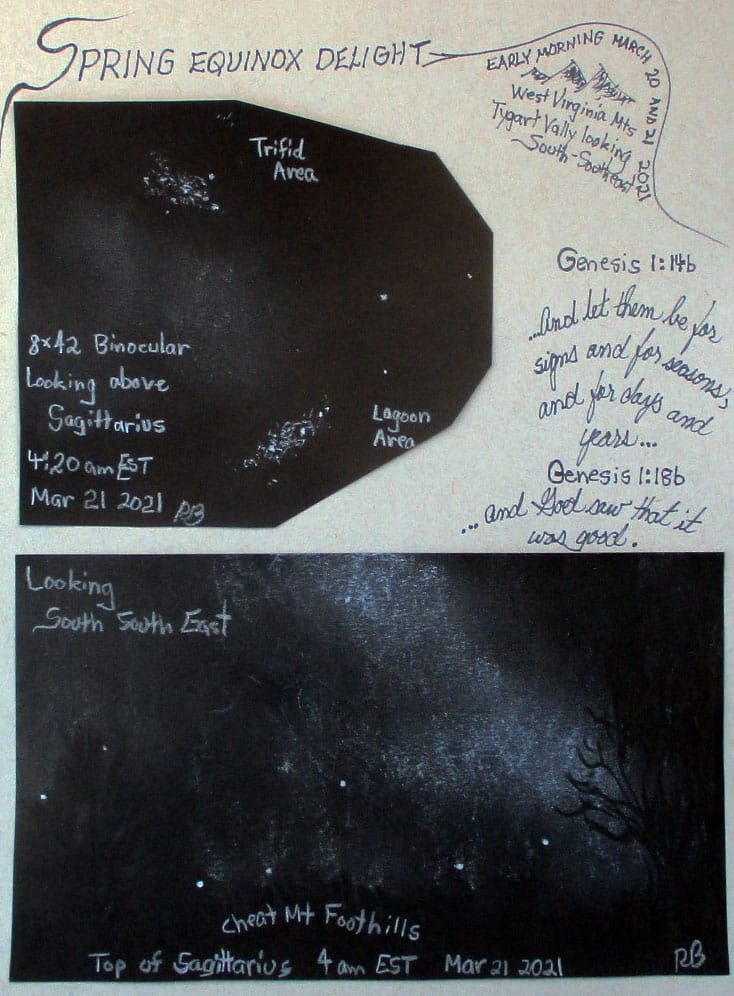 SPRING EQUINOX DELIGHT
EARLY MORNING MARCH 20 AND 21 2021
West Virginia Mts
Tygart Vally looking
South-Southeast
Trifid
Area
8×42 Binocular
Looking above
Sagittarius
4:20 am EST
Mar 21 2021 RB
Lagoon
Area
Genesis 1:14b
...And let them be for
signs and for seasons,
and for days and
years...
Genesis 1:18b
...and God saw that it
was good.
Looking
South South East
Cheat Mt Foothills
Top of Sagittarius 4 am EST Mar 21 2021
RB